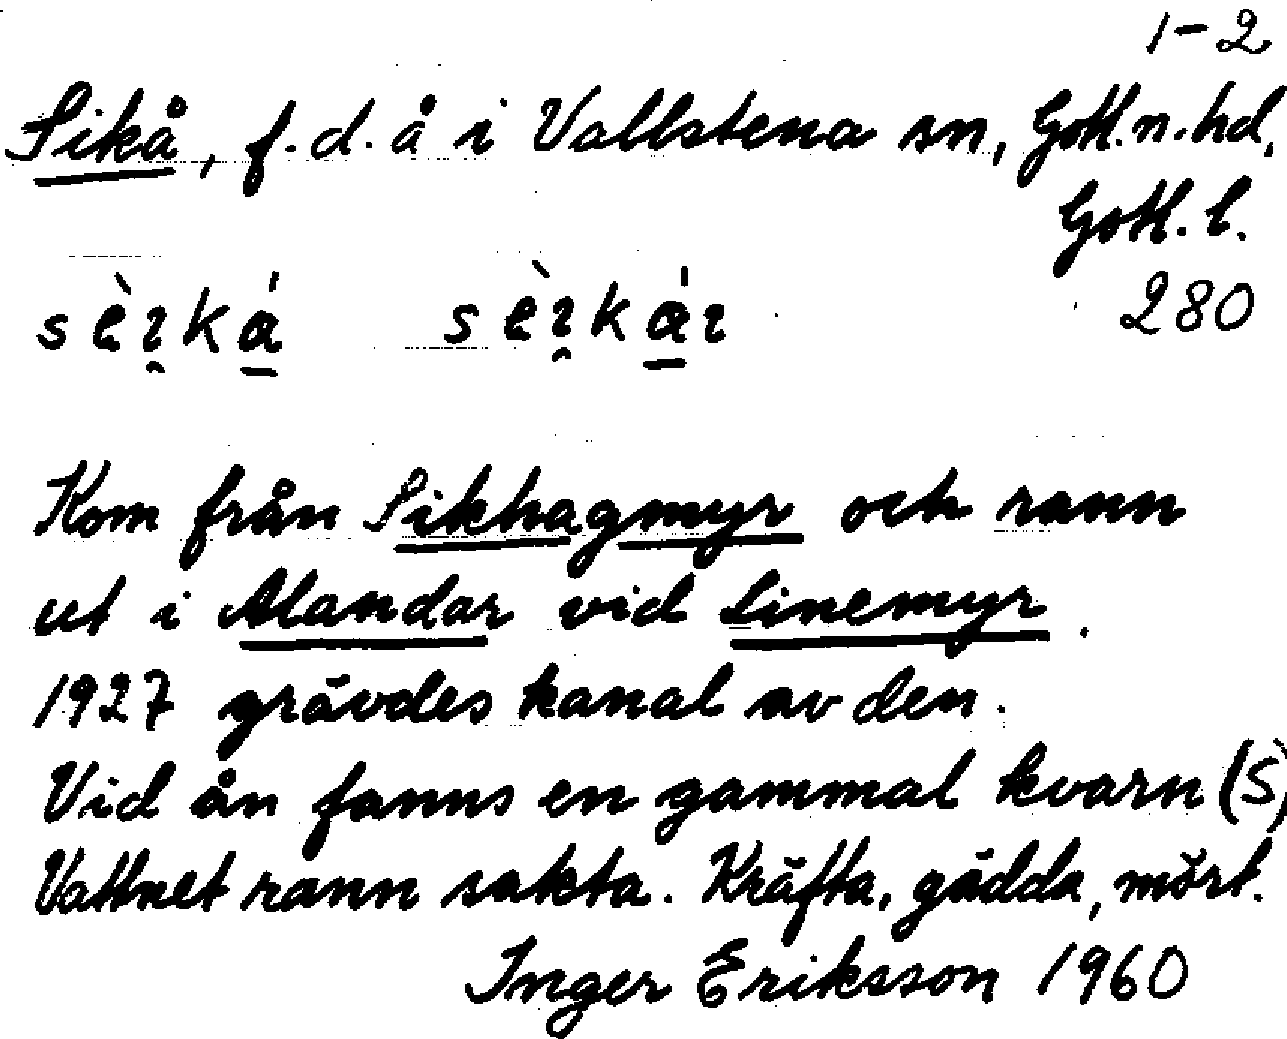 1-2
Sikå, f.d. å i Vallstena sn, Gotl.n.hd,
Gotl.l.
280
Kom från Sikhagmyr och rann
ut i Alandar vid Linemyr.
1927 grävdes kanal av den.
Vid ån fanns en gammal kvarn (S)
Vattnet rann sakta. Kräfta, gädda, mört.
Inger Eriksson 1960